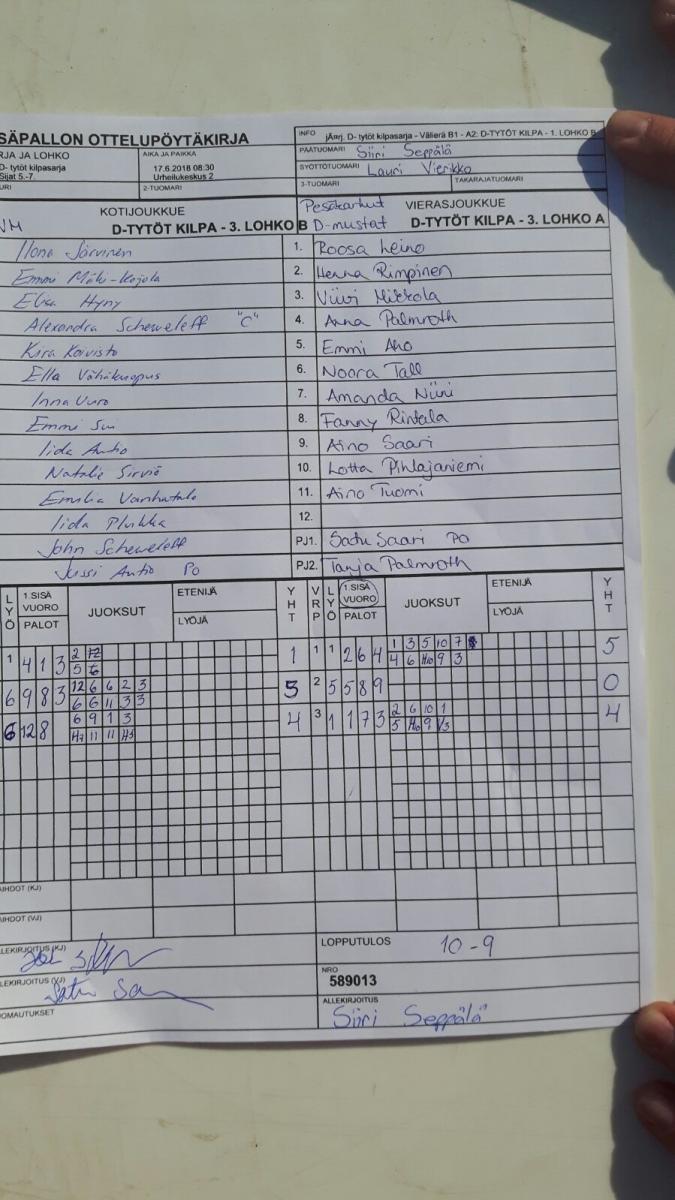 SÄPALLON OTTELUPÖYTÄKIRJA
INFO jÄnrj. D- tytöt kilpasarja - Välierä B1 - A2: D-TYTÖT KILPA - 1. LOHKO B
RJA JA LOHKO AIKA JA PAIKKA PÄÄTUOMARI Siiri Seppälä
D- tytöt kilpasarja 17.6.2018 08:30
Sijat 5.-7. Urheilukeskus 2 SYÖTTÖTUOMARI Lauri Vierikko
URI 2-TUOMARI 3-TUOMARI TAKARAJATUOMARI
KOTIJOUKKUE Pesäkarhut VIERASJOUKKUE
VM D-TYTÖT KILPA - 3. LOHKO B D-mustat D-TYTÖT KILPA - 3. LOHKO A
Ilona Järvinen 1. Roosa Leino
Emmi Mäki-Kojola 2. Henna Rimpinen
Elsa Hyny 3. Viivi Mikkola
Alexandra Scheweleff "C" 4. Anna Palmroth
Kira Koivisto 5. Emmi Aho
Ella Vähäkuopus 6. Noora Tall
Inna Vuro 7. Amanda Niini
Emmi 8. Fanny Rintala
Iida Autio 9. Aino Saari
Natalie Sirviö 10. Lotta Pihlajaniemi
Emilia Vanhatalo 11. Aino Tuomi
Iida Plukka 12.
John Scheweleff PJ1. Satu Saari PO
Jussi Autio PO PJ2. Tanja Palmroth
LYÖ 1.SISÄ VUORO PALOT JUOKSUT ETENIJÄ LYÖJÄ YHT VRP LYÖ 1.SISÄ VUORO PALOT JUOKSUT ETENIJÄ LYÖJÄ YHT
1 4 1 3 2 1 1 1 2 6 4 1 3 5 10 7 5
5 6 4 6 9 3
6 9 8 3 12 6 6 2 3 5 2 5 5 8 9 0
6 6 11 3 3
6 12 8 6 9 1 3 4 3 1 1 7 3 2 6 10 1 4
H7 11 11 H3 5 H10 9 V3
AIHDOT (KJ)
AIHDOT (VJ)
LEKIRJOITUS (KJ) LOPPUTULOS 10-9
LEKIRJOITUS (VJ) NRO
589013
OMAUTUKSET ALLEKIRJOITUS
Siiri Seppälä